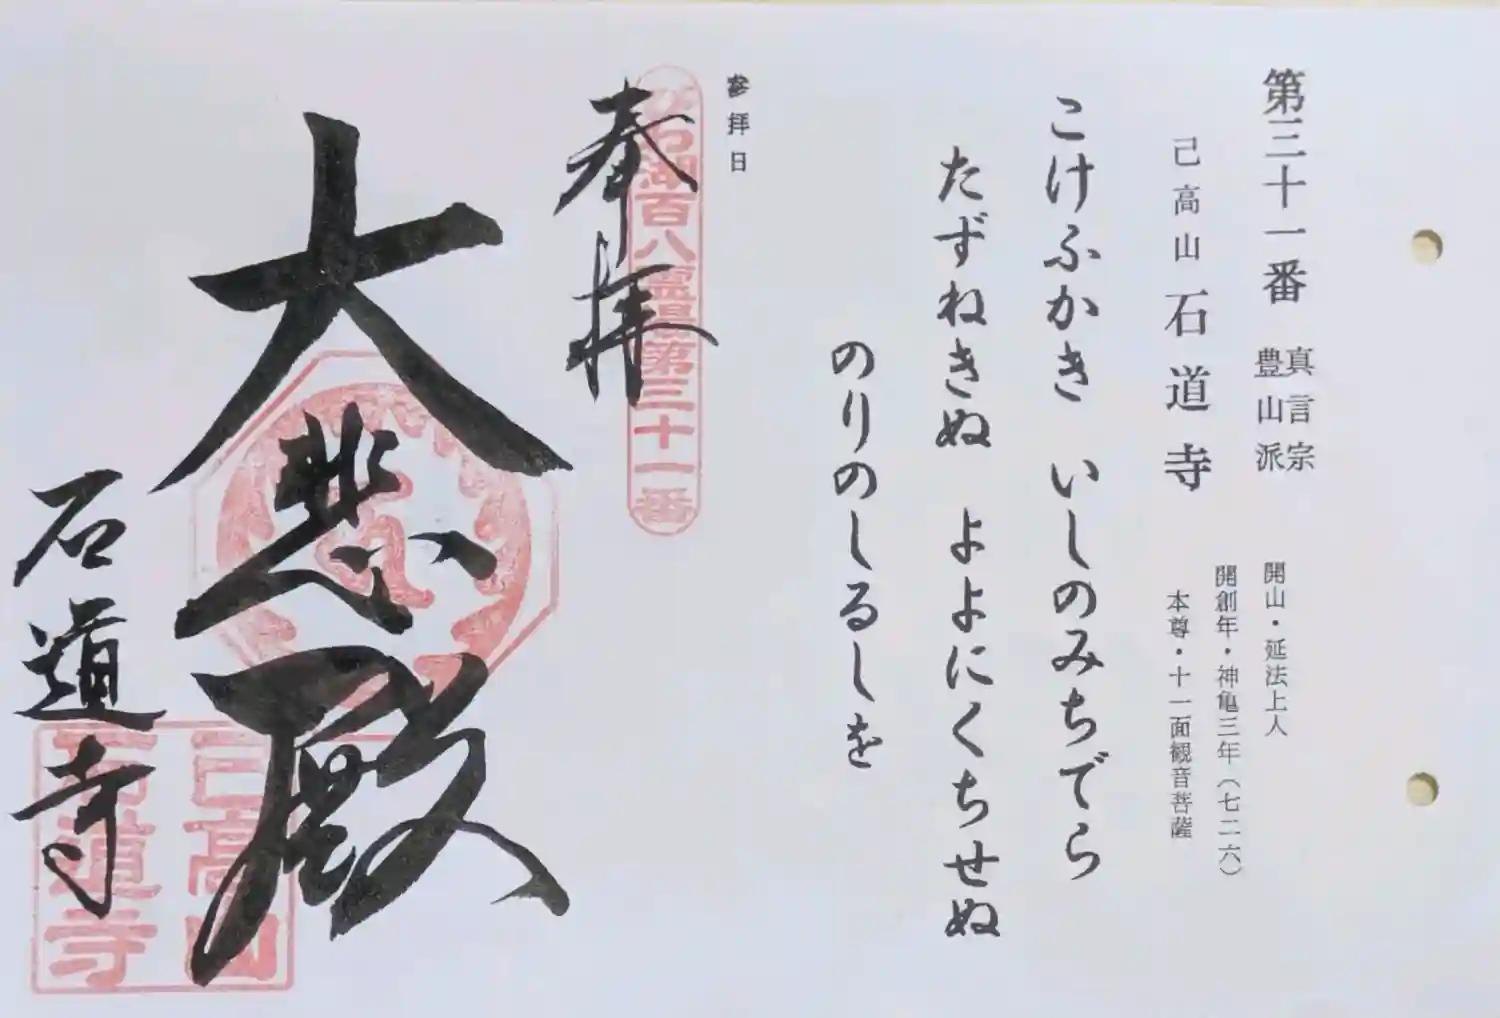 第三十一番
真言宗
豊山派
己高山 石道寺
開山・延法上人
開創年・神亀三年(七二六)
本尊・十一面観音菩薩
こけふかき いしのみちでら
たずねきぬ よよにくちせぬ
のりのしるしを
参拝日
奉拝
石湖百八霊場第三十一番
大悲殿
石道寺
己高山
石道寺